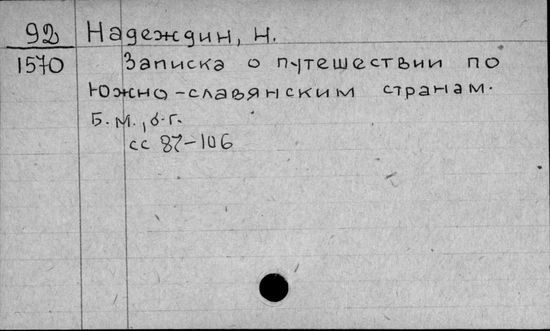 92 Надеждин, Н.
1570 Записка о путешествии по
Южно-славянским странам.
Б.м., б.г.
сс 87-106